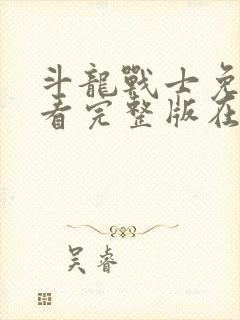 斗龍戰士免
看完整版在
吴睿